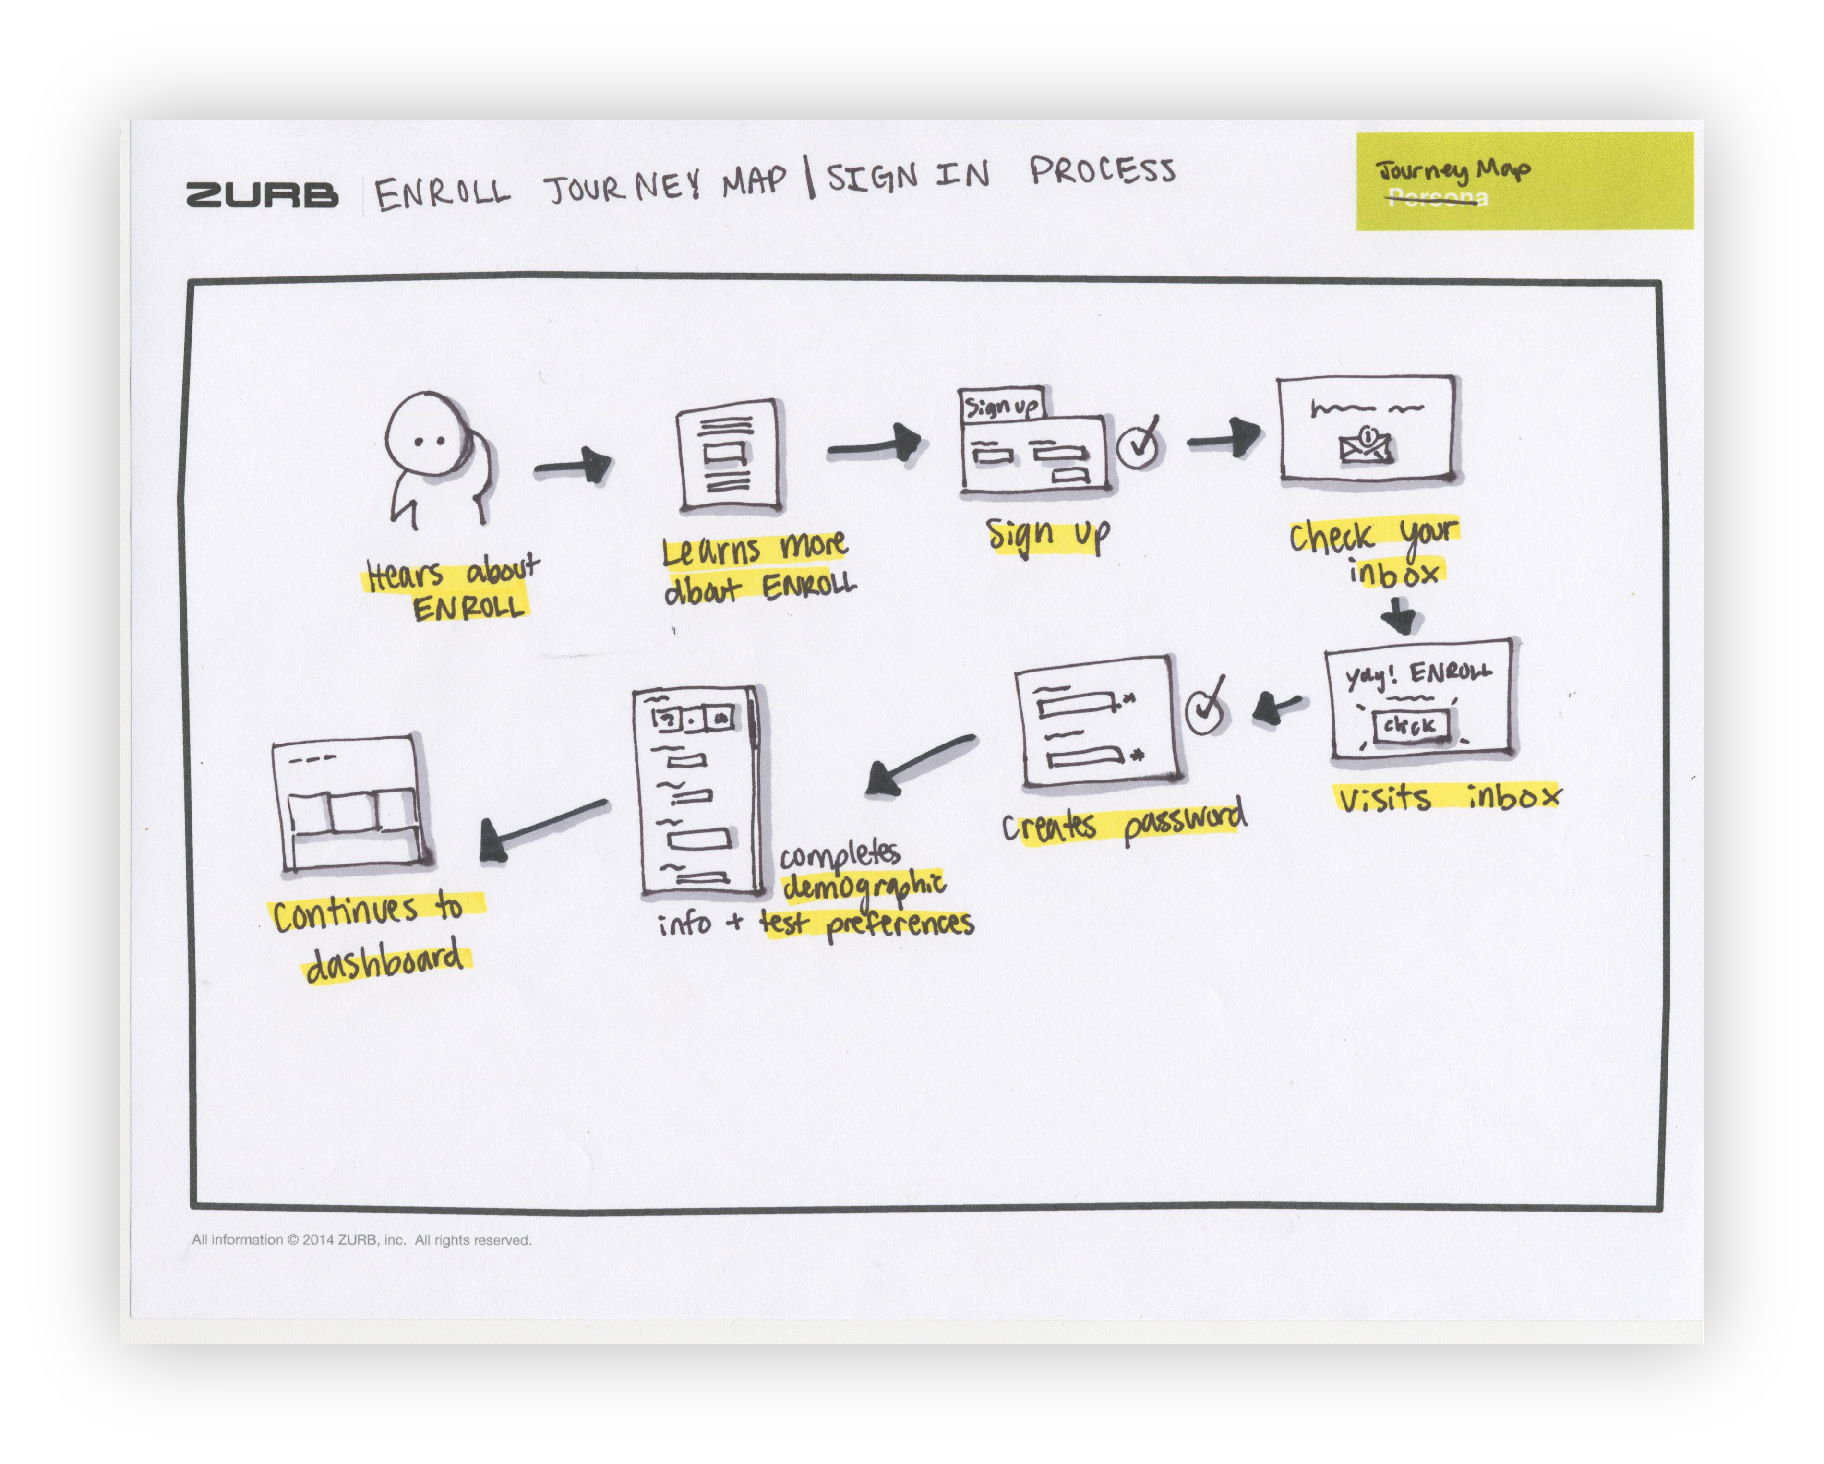 ZURB
ENROLL JOURNEY MAP | SIGN IN PROCESS
Journey Map
Persona
Sign up
Hears about
ENROLL
Learns more
about ENROLL
Sign up
Check your
inbox
yay! ENROLL
click
Visits inbox
Creates password
completes
demographic
info + test preferences
Continues to
dashboard
All information © 2014 ZURB, inc. All rights reserved.